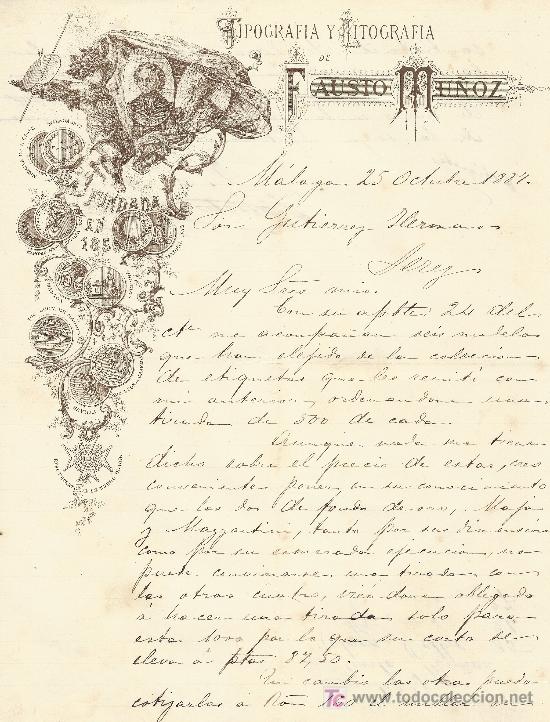 Tipografia y Litografia
DE
Fausto Muñoz
FUNDADA
EN
Málaga 25 Octubre 1884.
Sres Gutierrez Hermanos
Jerez
Muy Sres mio:
Con su aptble 24 del
cte me acompañan seis modelos
que han elejido de la coleccion
de etiquetas que les remití con
mi anterior, ordenando una
tirada de 500 de cada.
Aunque nada me tienen
dicho sobre el precio de estas, creo
conveniente poner en su conocimiento
que las dos de fondo de oro, Majo
y Mazzantini, tanto por su dimension
como por su esmerada ejecucion, no
puede combinarse una tirada con
las otras cuatro, viendome obligado
á hacer una tirada solo para
esta por lo que su costo se
eleva á ptas 82,50.
En cambio las otras puedo
cotizarlas á Rvn 160 el millar
todocoleccion
www.todocoleccion.net